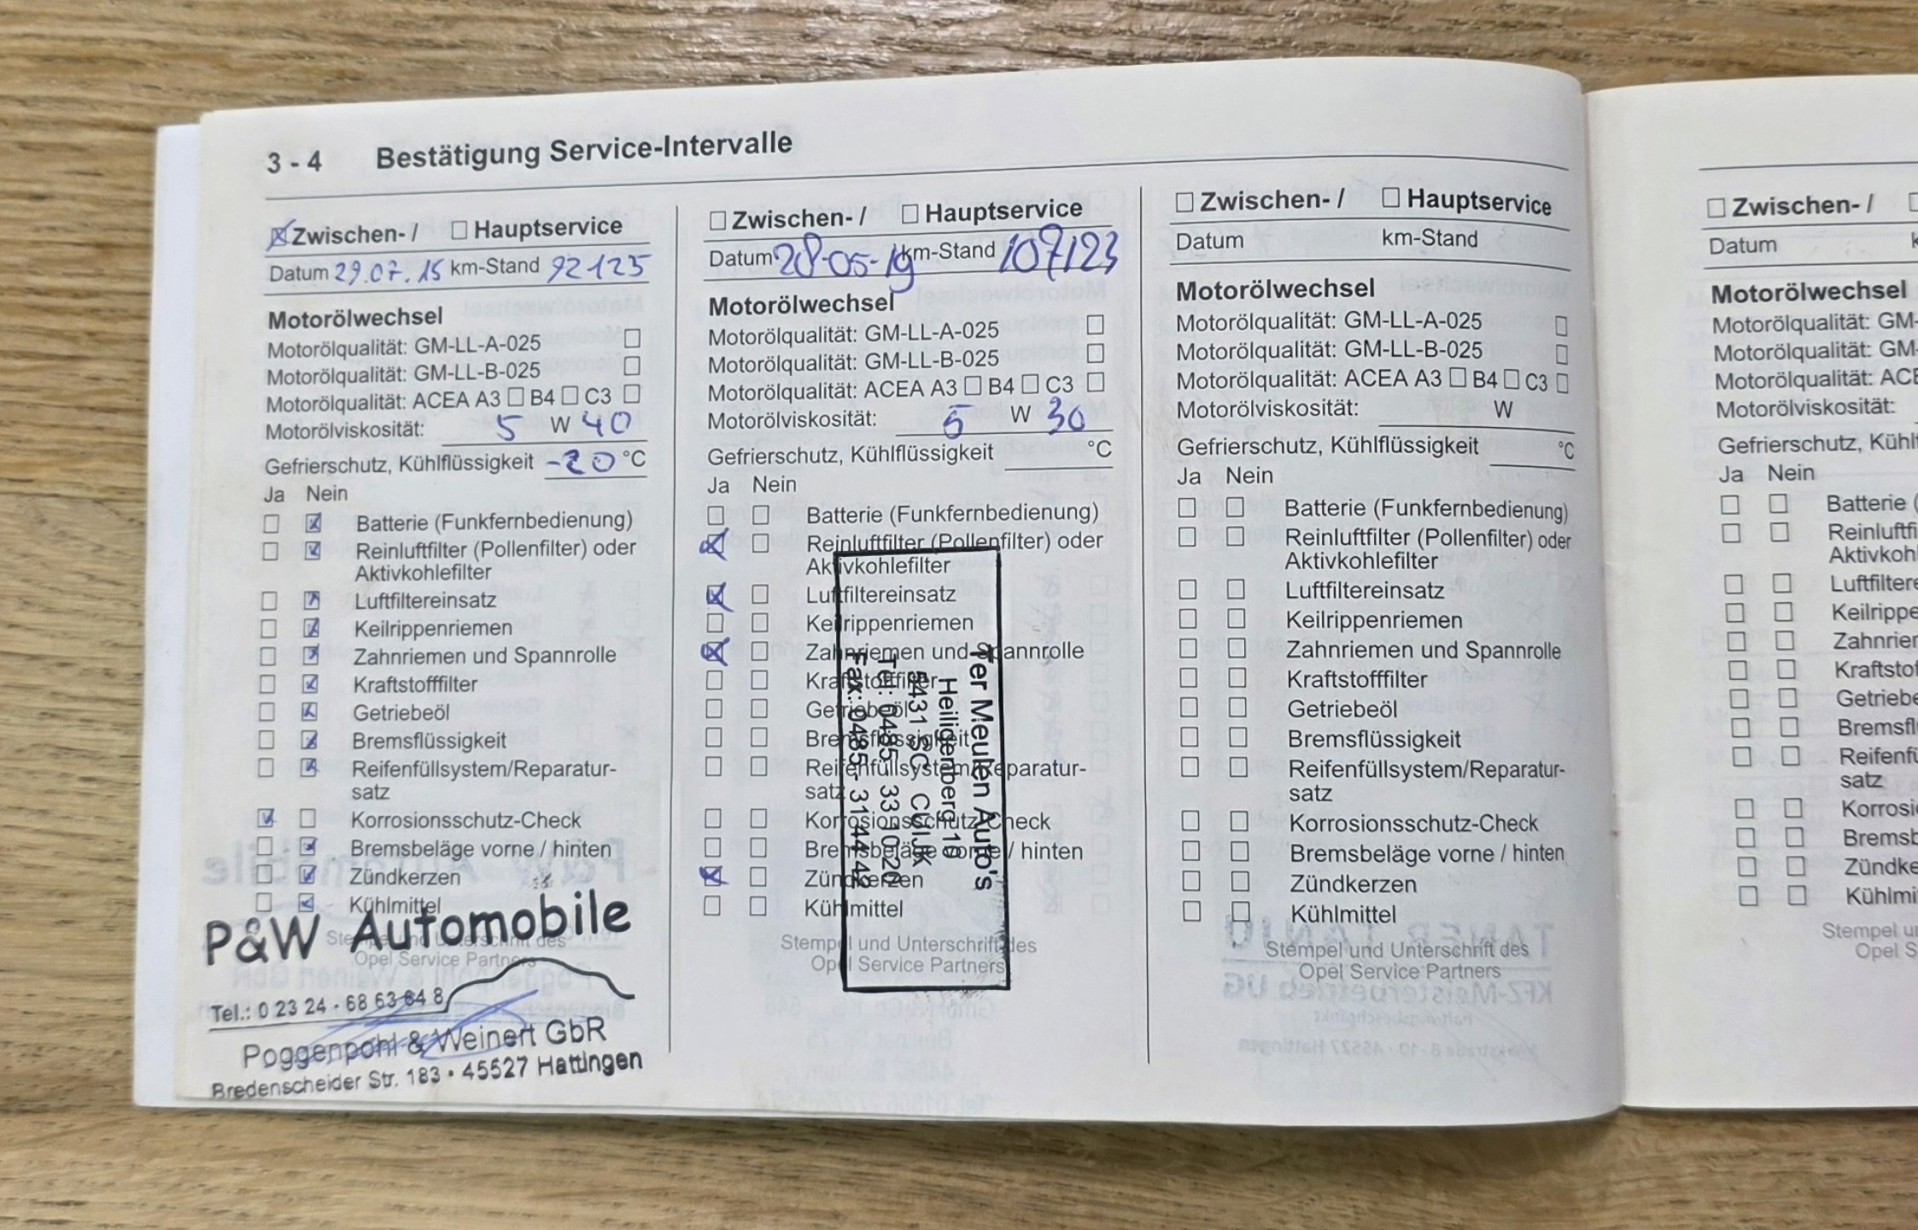 3 - 4 Bestätigung Service-Intervalle
Zwischen- / Hauptservice
Datum 29.07.15 km-Stand 92125
Motorölwechsel
Motorölqualität: GM-LL-A-025
Motorölqualität: GM-LL-B-025
Motorölqualität: ACEA A3 B4 C3
Motorölviskosität: 5 W 40
Gefrierschutz, Kühlflüssigkeit -20 °C
Ja Nein
Batterie (Funkfernbedienung)
Reinluftfilter (Pollenfilter) oder
Aktivkohlefilter
Luftfiltereinsatz
Keilrippenriemen
Zahnriemen und Spannrolle
Kraftstofffilter
Getriebeöl
Bremsflüssigkeit
Reifenfüllsystem/Reparatur-
satz
Korrosionsschutz-Check
Bremsbeläge vorne / hinten
Zündkerzen
Kühlmittel
Stempel und Unterschrift des
Opel Service Partners
P&W Automobile
Tel.: 0 23 24 - 68 63 64 8
Poggenpohl & Weinert GbR
Bredenscheider Str. 183 • 45527 Hattingen
Zwischen- / Hauptservice
Datum 28-05-19 km-Stand 107123
Motorölwechsel
Motorölqualität: GM-LL-A-025
Motorölqualität: GM-LL-B-025
Motorölqualität: ACEA A3 B4 C3
Motorölviskosität: 5 W 30
Gefrierschutz, Kühlflüssigkeit °C
Ja Nein
Batterie (Funkfernbedienung)
Reinluftfilter (Pollenfilter) oder
Aktivkohlefilter
Luftfiltereinsatz
Keilrippenriemen
Zahnriemen und Spannrolle
Kraftstofffilter
Getriebeöl
Bremsflüssigkeit
Reifenfüllsystem/Reparatur-
satz
Korrosionsschutz-Check
Bremsbeläge vorne / hinten
Zündkerzen
Kühlmittel
Stempel und Unterschrift des
Opel Service Partners
Ter Meulen Auto's
Heiligenberg 10
5431 SC CUIJK
Tel: 0485-331020
Fax: 0485-314442
Zwischen- / Hauptservice
Datum km-Stand
Motorölwechsel
Motorölqualität: GM-LL-A-025
Motorölqualität: GM-LL-B-025
Motorölqualität: ACEA A3 B4 C3
Motorölviskosität: W
Gefrierschutz, Kühlflüssigkeit °C
Ja Nein
Batterie (Funkfernbedienung)
Reinluftfilter (Pollenfilter) oder
Aktivkohlefilter
Luftfiltereinsatz
Keilrippenriemen
Zahnriemen und Spannrolle
Kraftstofffilter
Getriebeöl
Bremsflüssigkeit
Reifenfüllsystem/Reparatur-
satz
Korrosionsschutz-Check
Bremsbeläge vorne / hinten
Zündkerzen
Kühlmittel
Stempel und Unterschrift des
Opel Service Partners
Zwischen- /
Datum
Motorölwechsel
Motorölqualität: GM-
Motorölqualität: GM-
Motorölqualität: ACE
Motorölviskosität:
Gefrierschutz, Kühl
Ja Nein
Batterie (
Reinluftfi
Aktivkoh
Luftfiltere
Keilrippe
Zahnrie
Kraftsto
Getriebe
Bremsfl
Reifenfü
satz
Korrosi
Bremsb
Zündke
Kühlmi
Stempel u
Opel S